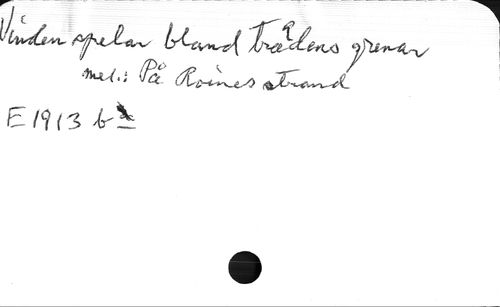 Vinden spelar bland trädens grenar
mel.: På Roines strand
E 1913 b